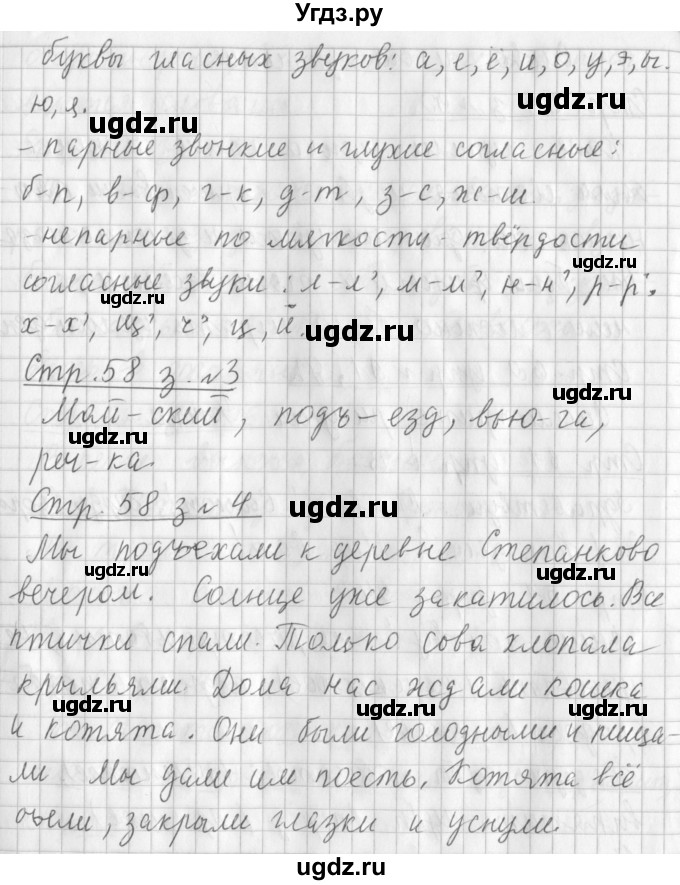 Угдз.ру
буквы гласных звуков: а, е, ё, и, о, у, э, ы.
ю, я.
ugdz.ru ugdz.ru
- парные звонкие и глухие согласные:
ugdz.ru
б-п, в-ф, г-к, д-т, з-с, ж-ш.
ugdz.ru ugdz.ru
-непарные по мягкости-твёрдости
согласные звуки: л-л', м-м', н-н', р-р',
ugdz.ru ugdz.ru
х-х', щ', ч', ц, й.
ugdz.ru
Стр. 58 з. №3
ugdz.ru
Май-ский, подъ-езд, вью-га,
ugdz.ru ugdz.ru
реч-ка.
Стр. 58 з №4
ugdz.ru
Мы подъехали к деревне Степанково
ugdz.ru ugdz.ru
вечером. Солнце уже закатилось. Все
птички спали. Только сова хлопала
ugdz.ru ugdz.ru
крыльями. Дома нас ждали кошка
ugdz.ru ugdz.ru ugdz.ru
и котята. Они были голодными и пища-
ли Мы дали им поесть. Котята всё
ugdz.ru ugdz.ru
съели, закрыли глазки и уснули.
ugdz.ru